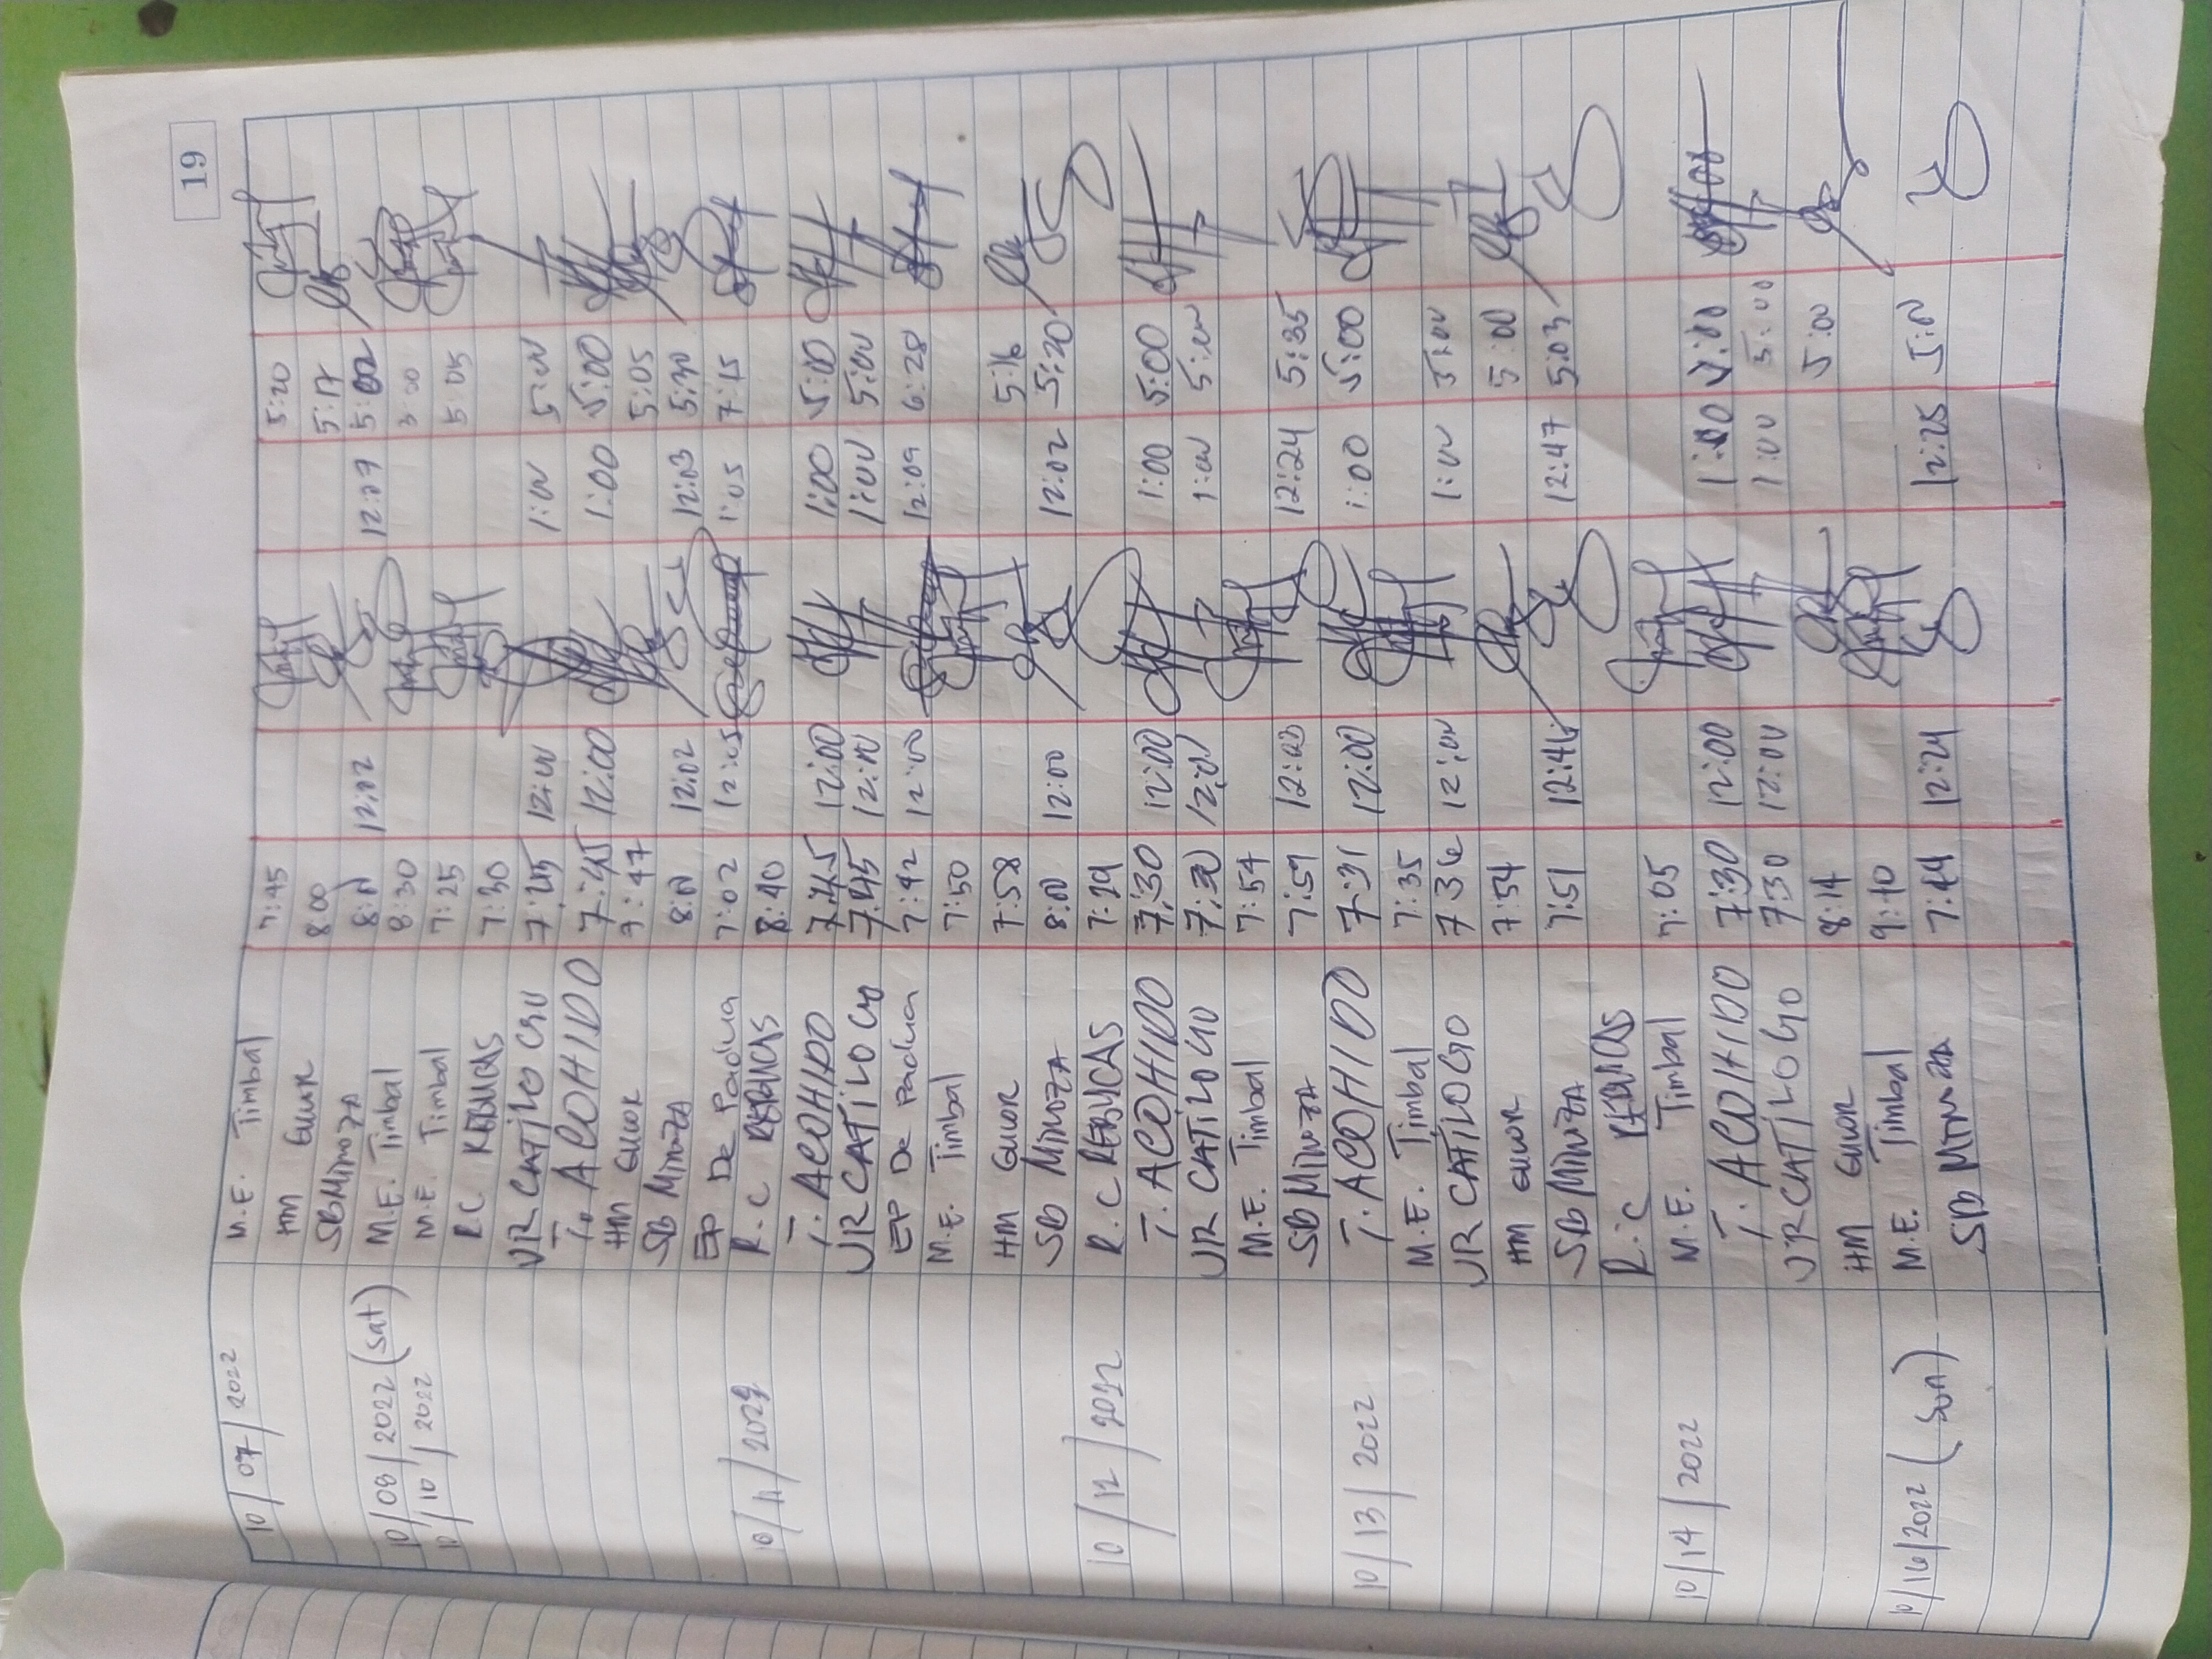 19
10/07/2022 M.E. Timbal 7:45 5:20
HM 8:00 5:17
SB Minoza 8:00 12:02 5:02
10/08/2022 (Sat) M.E. Timbal 8:30 3:00
10/10/2022 M.E. Timbal 7:25 5:05
R.C 7:30
JR CATILOGO 7:45 12:00 1:00 5:00
T. ACOHIDO 7:45 12:00 1:00 5:00
HM 7:47 5:05
SB Minoza 8:00 12:02 12:03 5:30
EP De Padua 7:02 12:05 1:05 7:15
10/11/2022 R.C 8:40
T. ACOHIDO 7:45 12:00 1:00 5:00
JR CATILOGO 7:45 12:00 1:00 5:00
EP De Padua 7:42 12:00 12:09 6:28
M.E. Timbal 7:50
HM 7:58 5:16
SB Minoza 8:00 12:00 12:02 5:20
10/12/2022 R.C 7:29
T. ACOHIDO 7:30 12:00 1:00 5:00
JR CATILOGO 7:30 12:00 1:00 5:00
M.E. Timbal 7:54
SB Minoza 7:59 12:03 12:24 5:35
10/13/2022 T. ACOHIDO 7:31 12:00 1:00 5:00
M.E. Timbal 7:35
JR CATILOGO 7:36 12:00 1:00 5:00
HM 7:54 5:00
SB Minoza 7:51 12:46 12:47 5:03
R.C
10/14/2022 M.E. Timbal 7:05
T. ACOHIDO 7:30 12:00 1:00 5:00
JR CATILOGO 7:30 12:00 1:00 5:00
HM 8:14 5:00
10/16/2022 (Sun) M.E. Timbal 9:10
SB Minoza 7:44 12:24 12:25 5:00